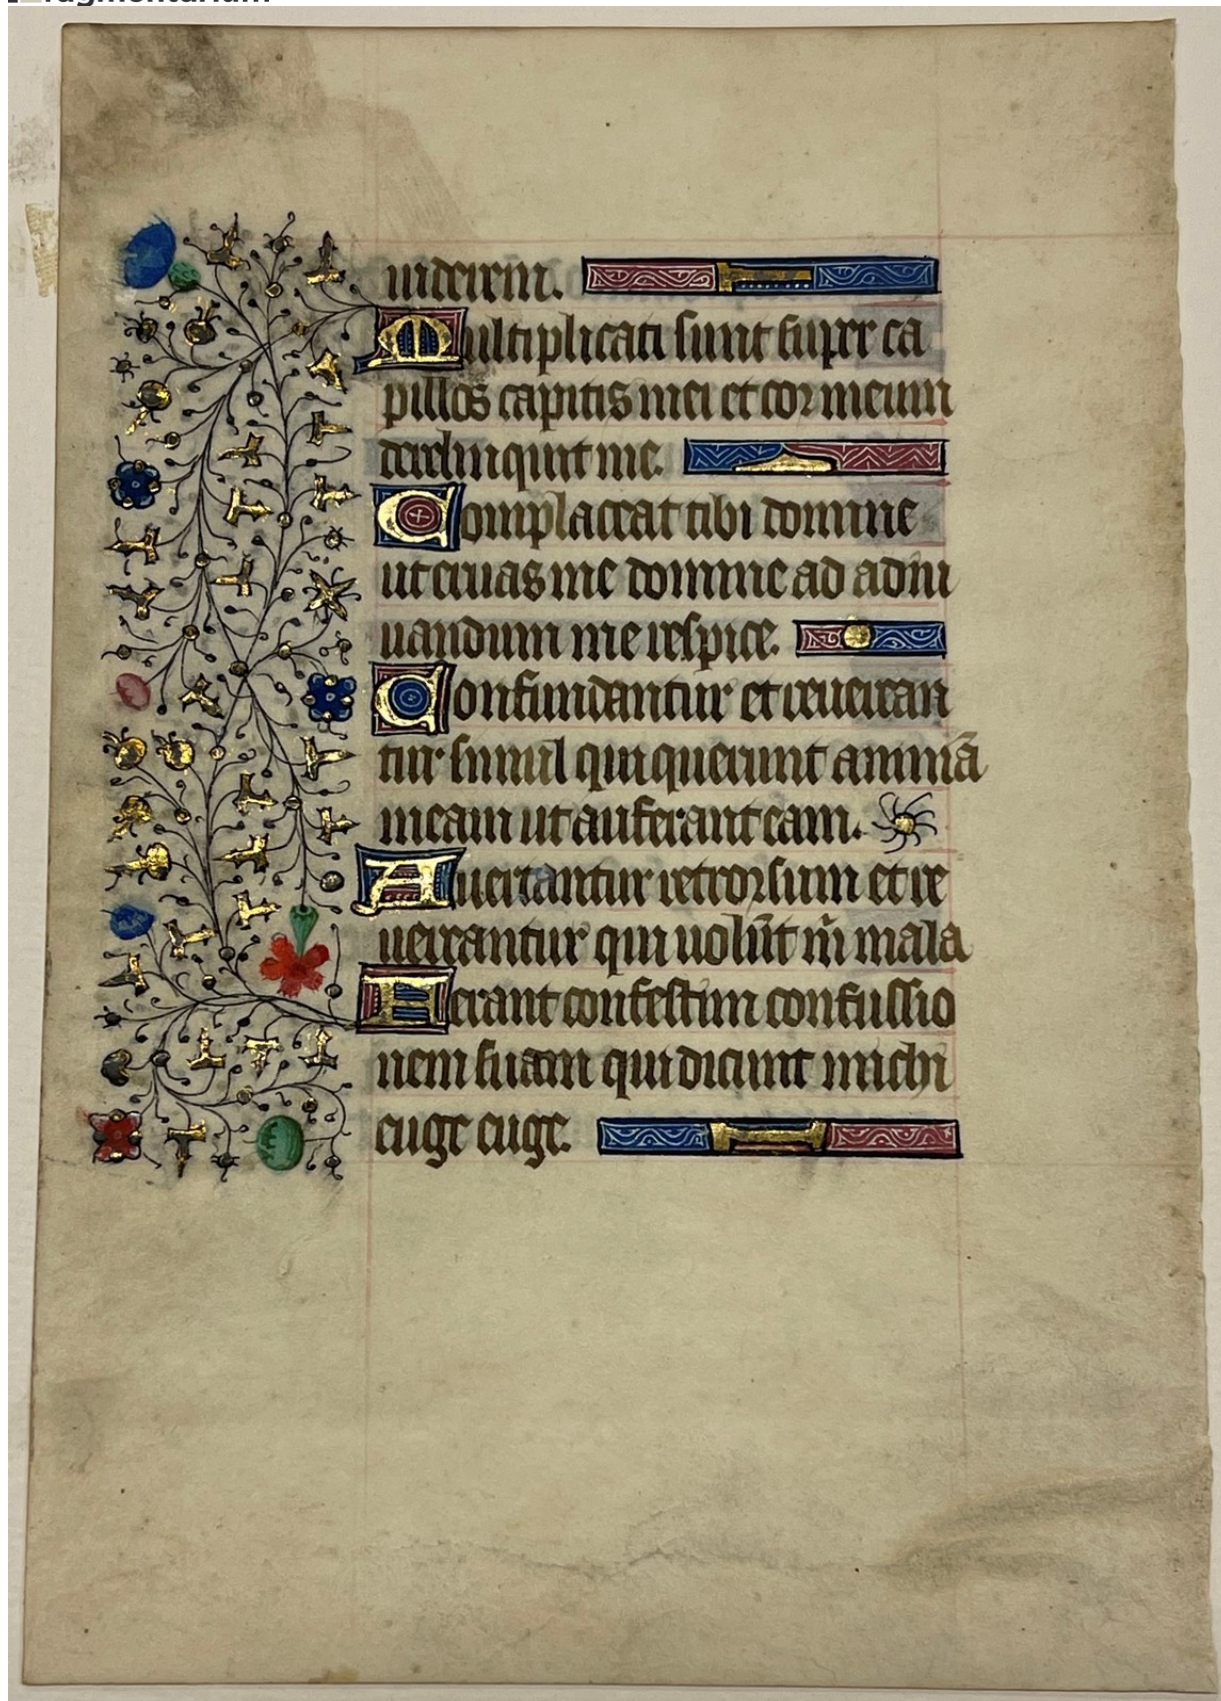 uiderem.
Multiplicati sunt super ca
pillos capitis mei et cor meum
derelinquit me.
Complaceat tibi domine
ut eruas me domine ad adiu
uandum me respice.
Confundantur et reueiran
tur simul qui querunt animā
meam ut auferant eam.
Auertantur retrorsum et re
uerrantur qui uolūt m̄ mala
Ferant confestim confussio
nem suam qui dicunt michi
euge euge.